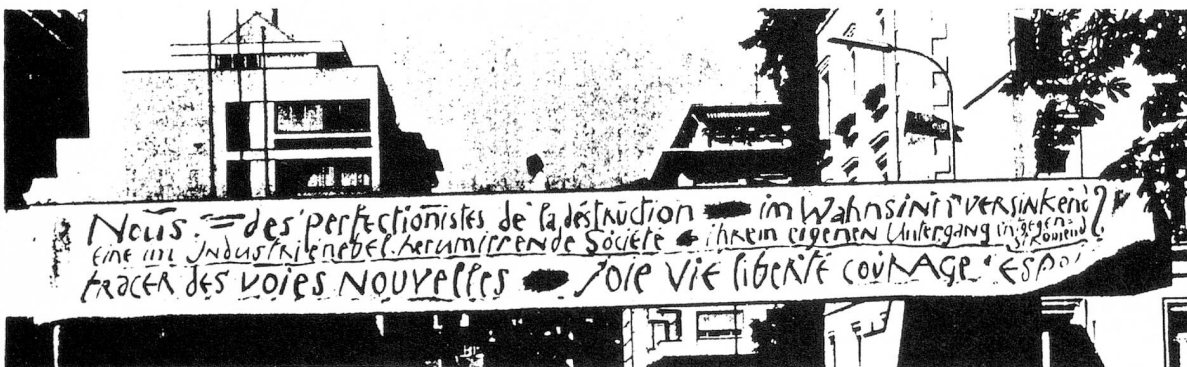 Nous := des perfectionistes de la déstruction im Wahnsinn VERSINKEND?
Eine im Industrienebel herumirrende Société ihrem eigenen Untergang entgegen strömend
tracer des voies nouvelles Joie Vie liberté couRAGE ESPOI